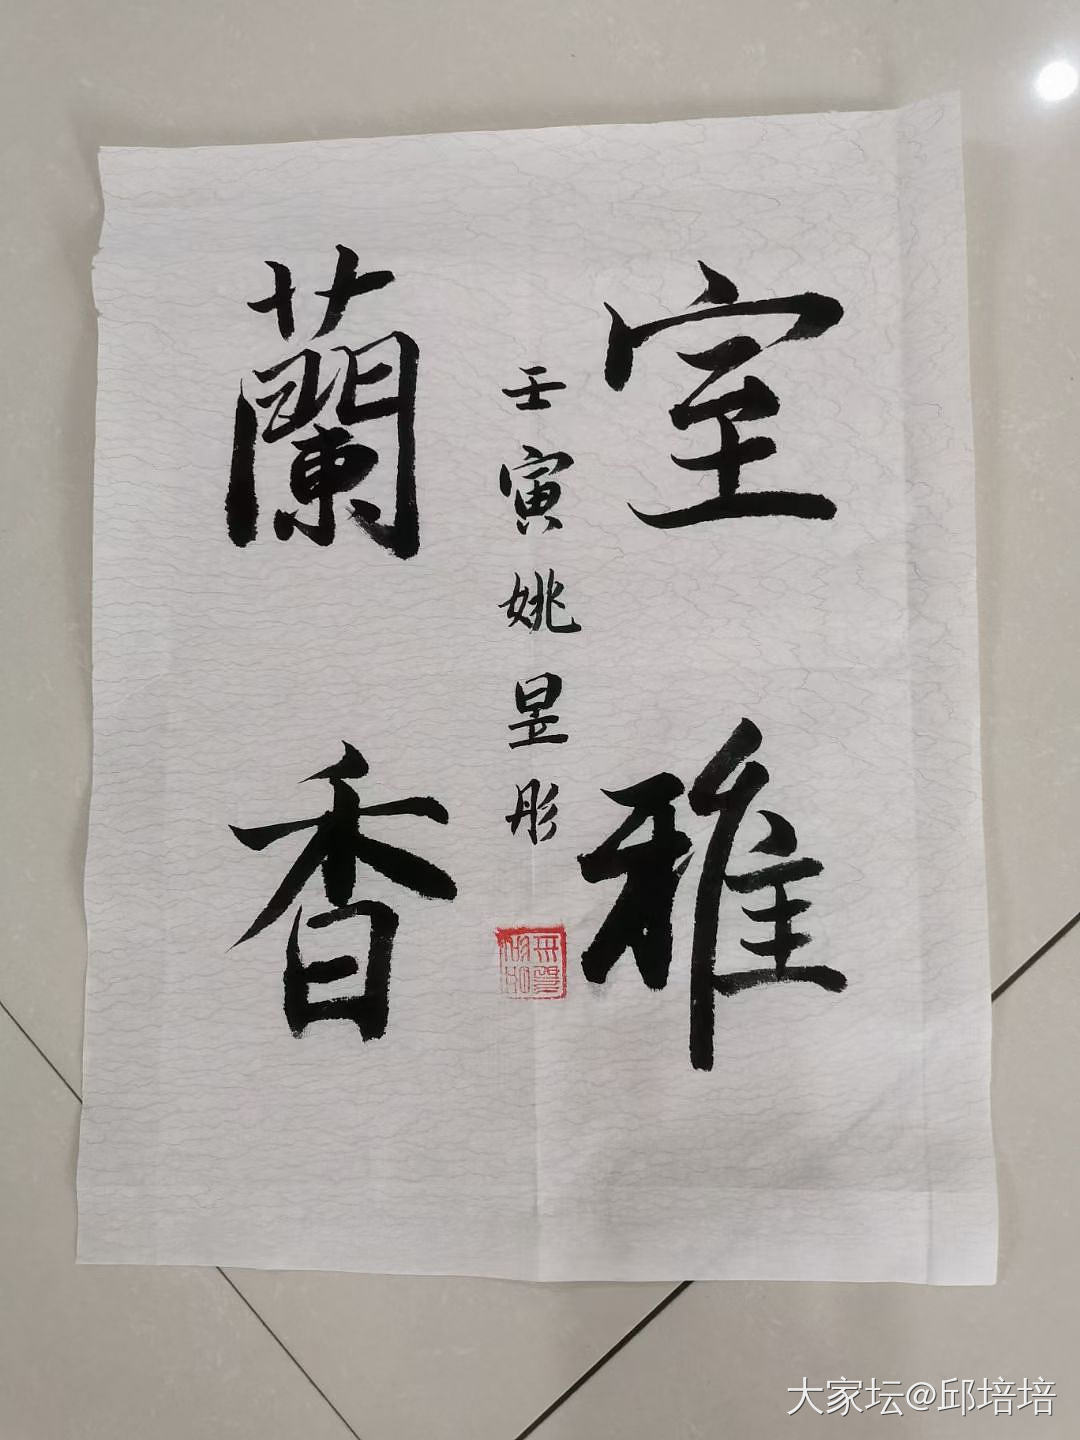 室雅
蘭香
壬寅姚昱彤
大家坛@邱培培